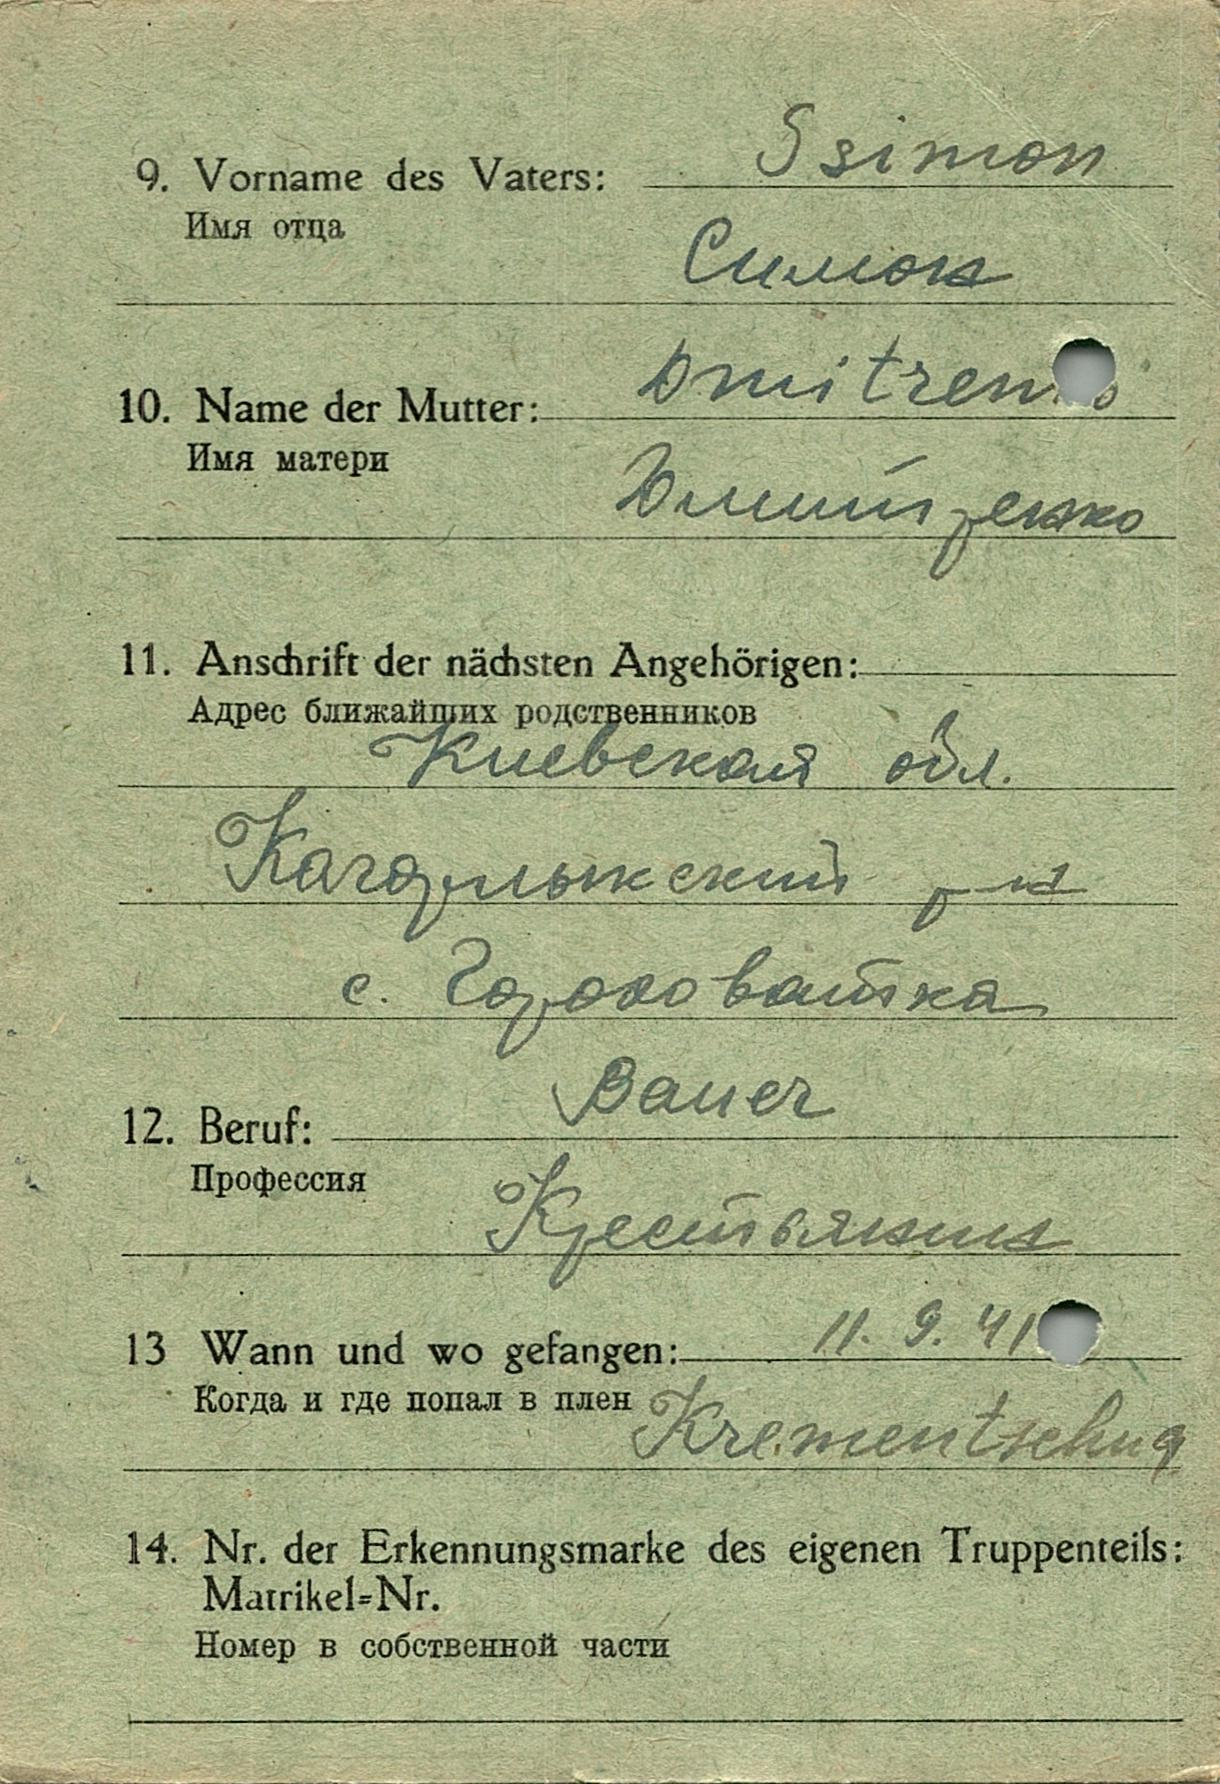 9. Vorname des Vaters: Ssimon
Имя отца
Симон
10. Name der Mutter: Dmitrenko
Имя матери
Дмитренко
11. Anschrift der nächsten Angehörigen:
Адрес ближайших родственников
Киевская обл.
Кагарлыкский р-н
с. Гороховатка
12. Beruf: Bauer
Профессия
Крестьянин
13 Wann und wo gefangen: 11. 9. 41
Когда и где попал в плен
Krementschug
14. Nr. der Erkennungsmarke des eigenen Truppenteils:
Matrikel=Nr.
Номер в собственной части